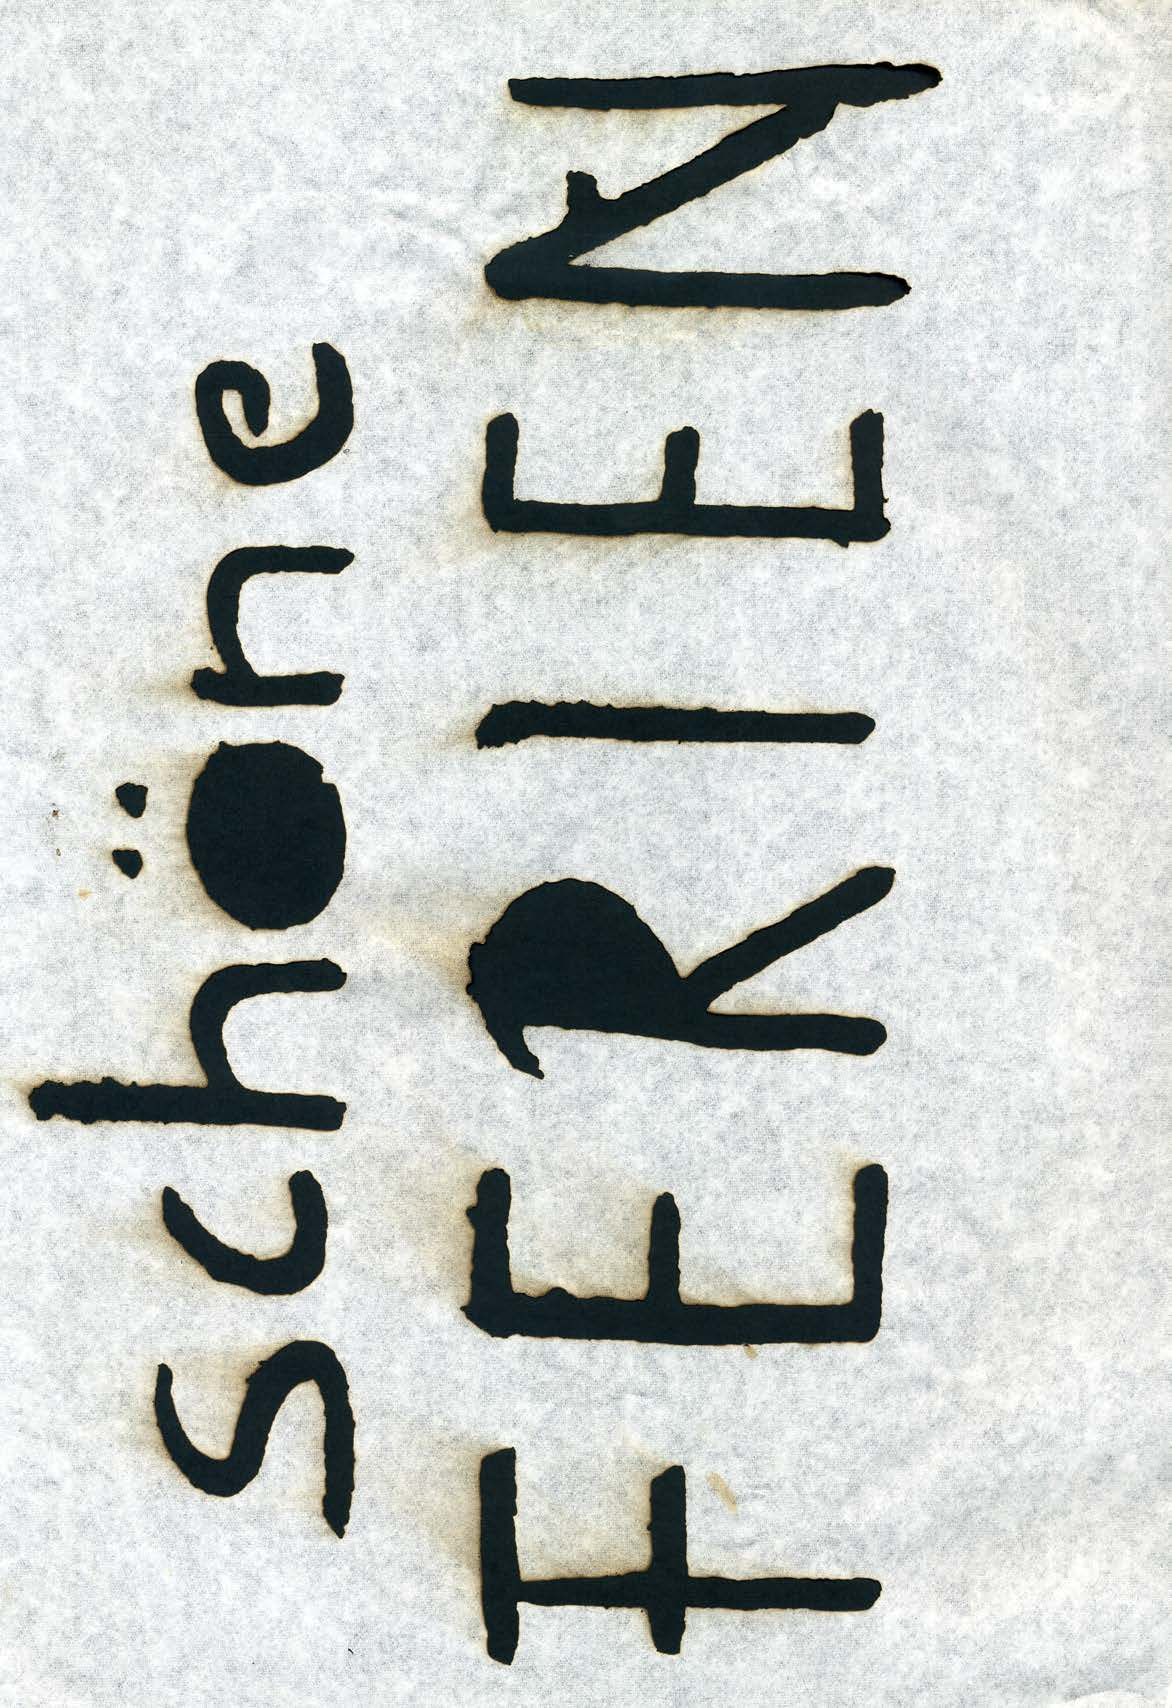 schöne
FERIEN